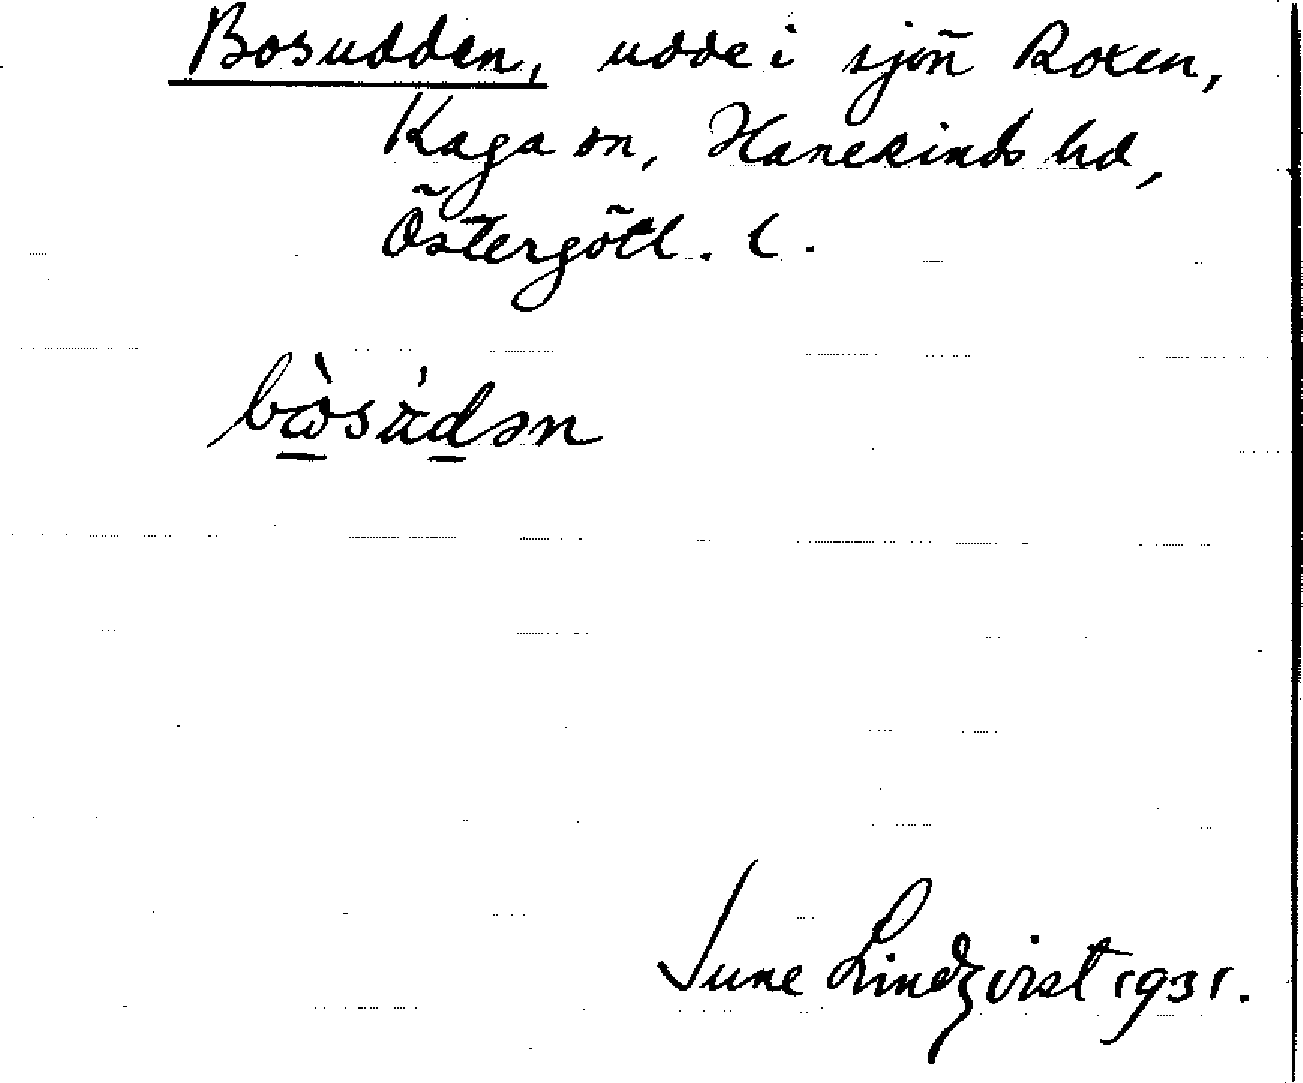 Bosudden, udde i sjön Roxen,
Kaga sn, Hanekinds hd,
Östergötl. l.
bὼsúdən
Sune Lindqvist 1931.